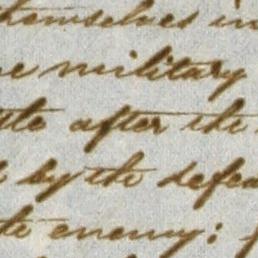 themselves in
military
after the
by the defea
enemy;